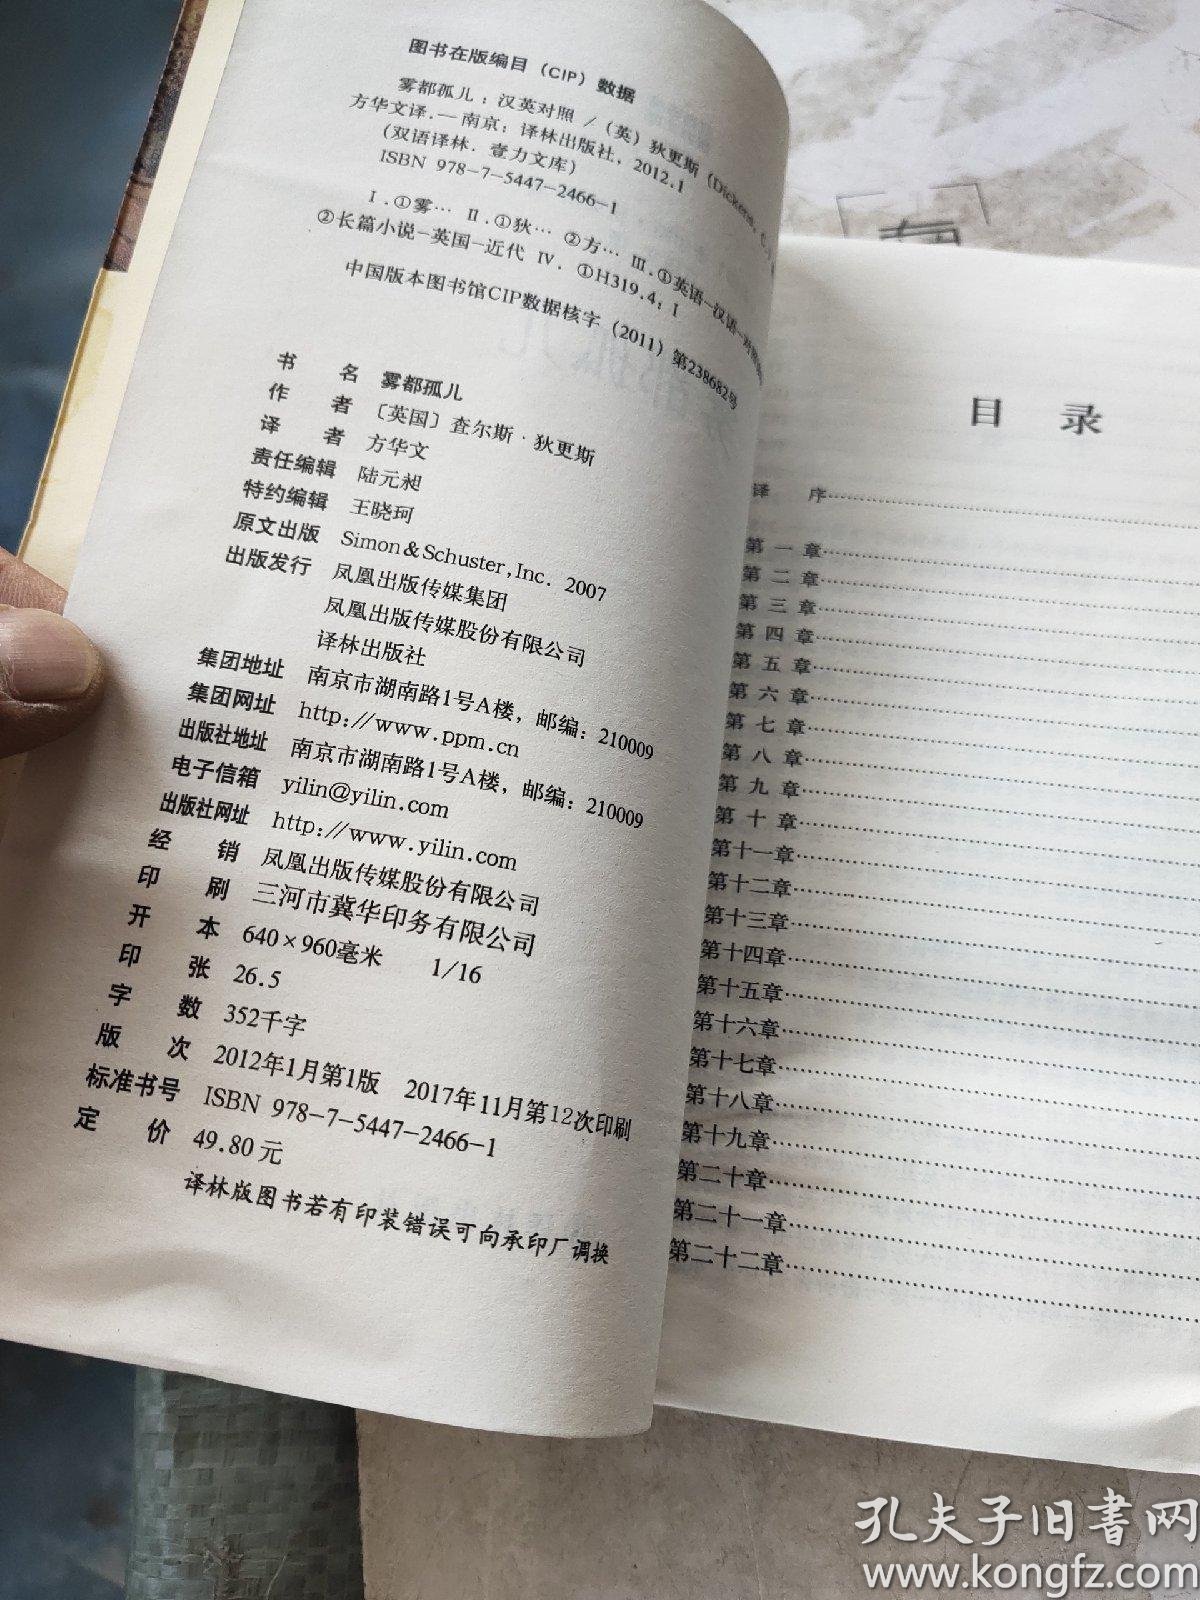 图书在版编目（CIP）数据
雾都孤儿：汉英对照／（英）狄更斯（Dickens, C.）
方华文译.—南京：译林出版社，2012.1
（双语译林．壹力文库）
ISBN 978-7-5447-2466-1
Ⅰ.①雾… Ⅱ.①狄… ②方… Ⅲ.①英语-汉语-对照
②长篇小说-英国-近代 Ⅳ. ①H319.4: I
中国版本图书馆CIP数据核字（2011）第238682号
书 名 雾都孤儿
作 者 〔英国〕查尔斯·狄更斯
译 者 方华文
责任编辑 陆元昶
特约编辑 王晓珂
原文出版 Simon & Schuster, Inc. 2007
出版发行 凤凰出版传媒集团
凤凰出版传媒股份有限公司
译林出版社
集团地址 南京市湖南路1号A楼，邮编：210009
集团网址 http://www.ppm.cn
出版社地址 南京市湖南路1号A楼，邮编：210009
电子信箱 yilin@yilin.com
出版社网址 http://www.yilin.com
经 销 凤凰出版传媒股份有限公司
印 刷 三河市冀华印务有限公司
开 本 640×960毫米 1/16
印 张 26.5
字 数 352千字
版 次 2012年1月第1版 2017年11月第12次印刷
标准书号 ISBN 978-7-5447-2466-1
定 价 49.80元
译林版图书若有印装错误可向承印厂调换
目 录
译 序
第 一 章
第 二 章
第 三 章
第 四 章
第 五 章
第 六 章
第 七 章
第 八 章
第 九 章
第 十 章
第十一章
第十二章
第十三章
第十四章
第十五章
第十六章
第十七章
第十八章
第十九章
第二十章
第二十一章
第二十二章
孔夫子旧书网
www.kongfz.com